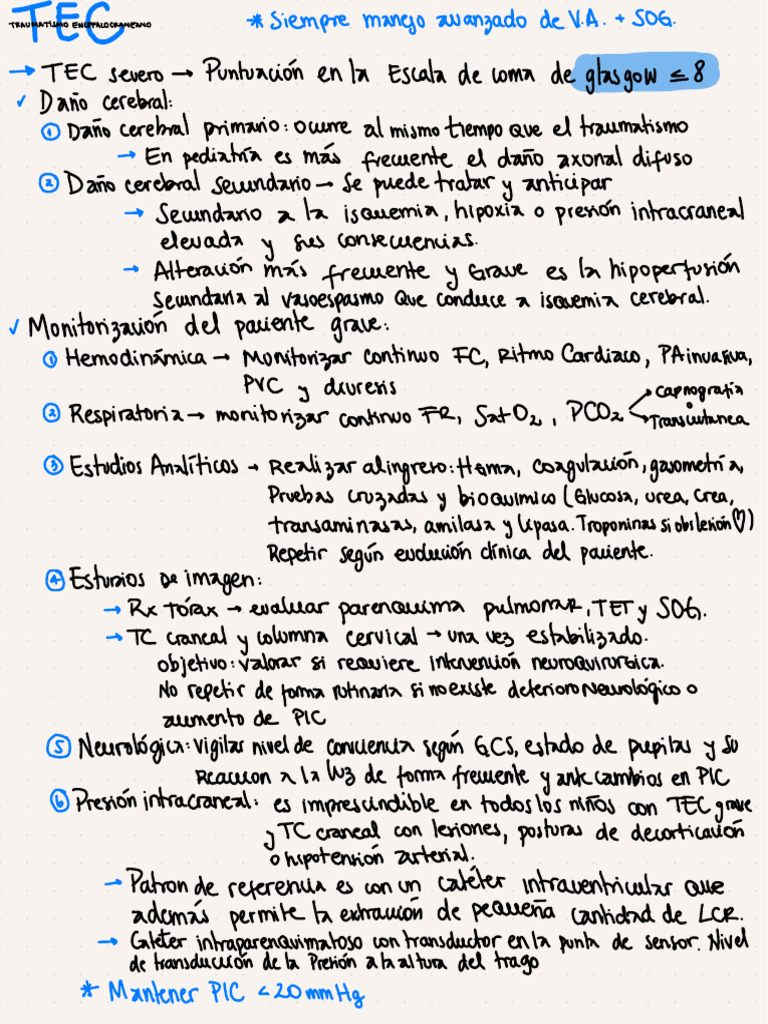 TEC
TRAUMATISMO ENCEFALOCRANEANO
* Siempre manejo avanzado de V.A. + SOG.
→ TEC severo → Puntuación en la Escala de coma de glasgow ≤ 8
✓ Daño cerebral:
① Daño cerebral primario: ocurre al mismo tiempo que el traumatismo
→ En pediatría es más frecuente el daño axonal difuso
② Daño cerebral secundario → Se puede tratar y anticipar
→ Secundario a la isquemia, hipoxia o presión intracraneal
elevada y sus consecuencias.
→ Alteración más frecuente y Grave es la hipoperfusión
Secundaria al vasoespasmo que conduce a isquemia cerebral.
✓ Monitorización del paciente grave:
① Hemodinámica → Monitorizar continuo FC, Ritmo Cardiaco, PA invasiva,
PVC y diuresis
② Respiratoria → monitorizar continuo FR, Sat O2, PCO2 → Capnografia
o
→ Transcutanea
③ Estudios Analíticos → Realizar al ingreso: Hema, Coagulación, gasometría,
Pruebas cruzadas y bioquimico (Glucosa, urea, Crea,
transaminasas, amilasa y lipasa. Troponinas si obs lesión ♡)
Repetir según evolución clínica del paciente.
④ Esturios de imagen:
→ Rx tórax → evaluar parenquima pulmonar, TET y SOG.
→ TC craneal y columna cervical → una vez estabilizado.
objetivo: valorar si requiere intervención neuroquirurgica.
No repetir de forma rutinaria si no existe deterioro Neurológico o
aumento de PIC
⑤ Neurológica: vigilar nivel de conciencia según GCS, estado de pupilas y su
Reaccion a la luz de forma frecuente y ante cambios en PIC
⑥ Presión intracraneal: es imprescindible en todos los niños con TEC grave
y TC craneal con lesiones, posturas de decorticación
o hipotensión arterial.
→ Patron de referencia es con un catéter intraventricular que
además permite la extracción de pequeña cantidad de LCR.
→ Catéter intraparenquimatoso con transductor en la punta de sensor. Nivel
de transducción de la Presión a la altura del trago
* Mantener PIC < 20 mmHg